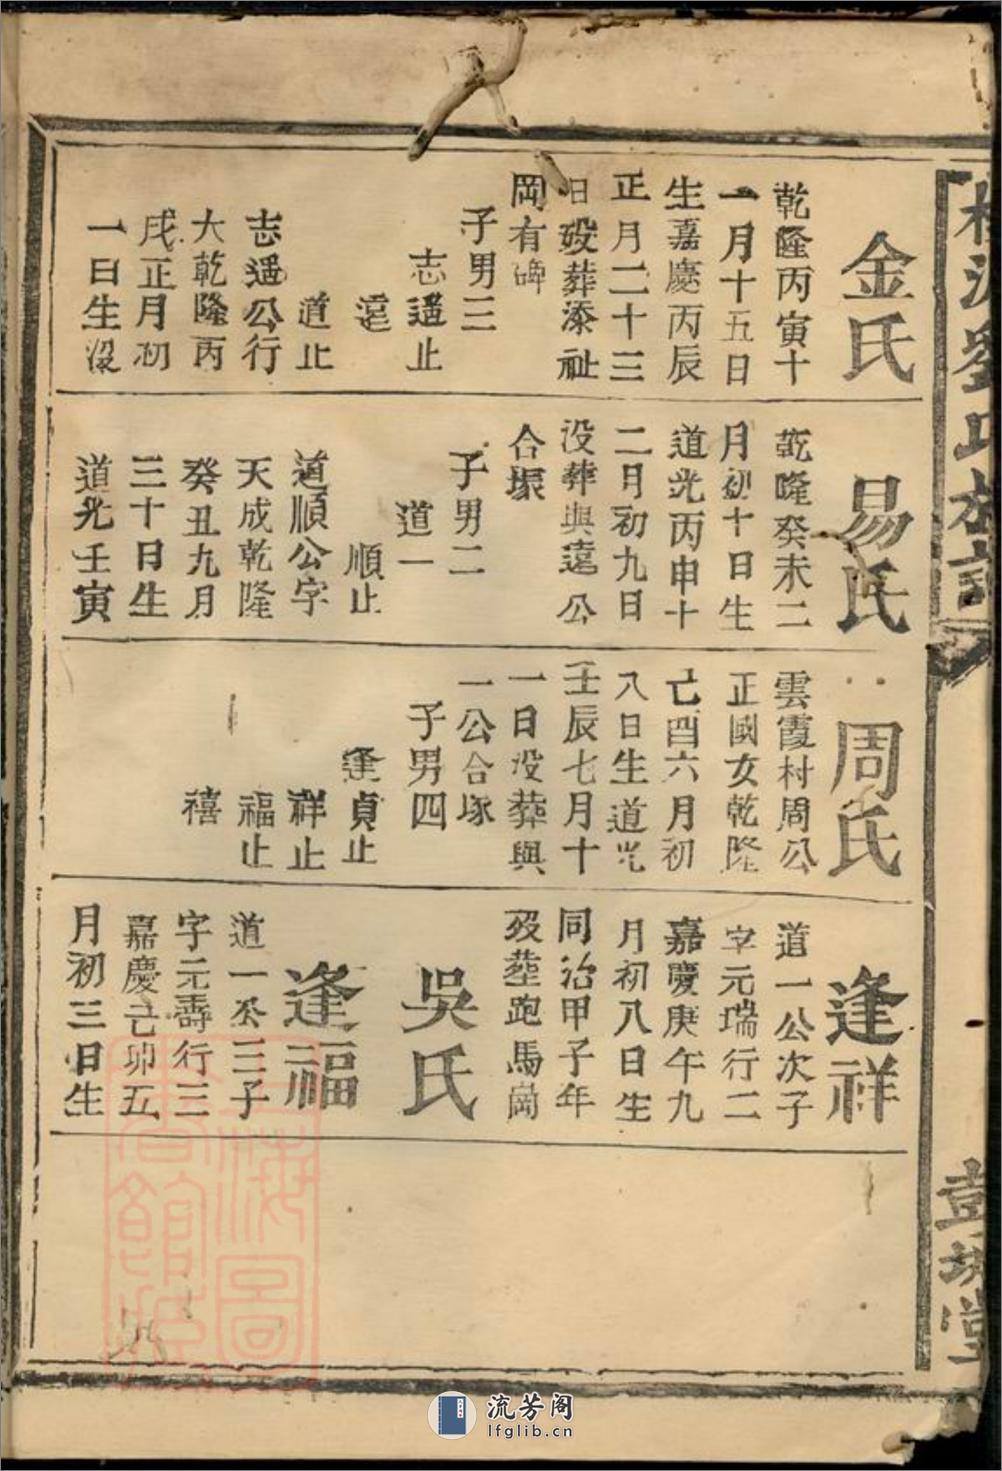 劉氏
彭城堂
金氏
乾隆丙寅十
一月十五日
生嘉慶丙辰
正月二十三
日歿葬漆祉
岡有碑
子男三
志遥止
遠
道止
志遥公行
大乾隆丙
戌正月初
一日生没
易氏
乾隆癸未二
月初十日生
道光丙申十
二月初九日
没葬與遠公
合塚
子男二
道一
順止
道順公字
天成乾隆
癸丑九月
三十日生
道光壬寅
周氏
雲霞村周公
正國女乾隆
己酉六月初
八日生道光
壬辰七月十
一日没葬與
一公合塚
子男四
逢貞止
祥止
福止
禧
逢祥
道一公次子
字元瑞行二
嘉慶庚午九
月初八日生
同治甲子年
歿塟跑馬崗
吳氏
逢福
道一公三子
字元壽行三
嘉慶己卯五
月初三日生
上海圖
書館藏
流芳阁
lfglib.cn